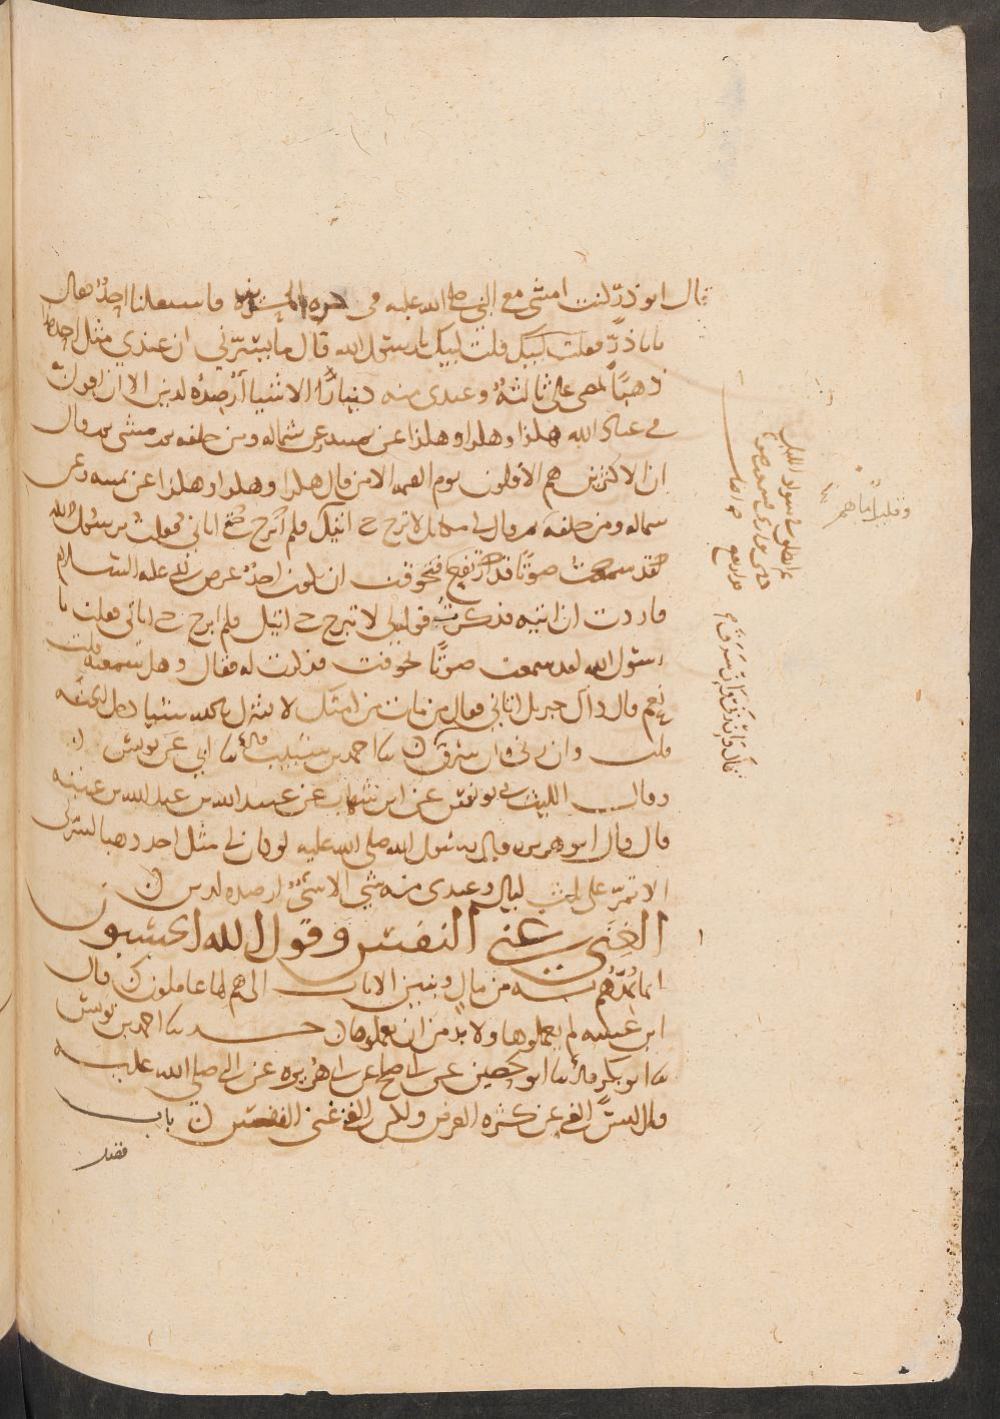 قال ابو ذر كنت امشى مع النبى صلى الله عليه فى حره المدينة فاستقبلنا احد فقال
يابا ذر فقلت لبيك قلت لبيك يا رسول الله قال ما يسرني ان عندي مثل احد
ذهبا تمضى على ثالثة وعندى منه دينارا الا شيا ارصده لدين الا ان اقول
فى عباد الله هكذا وهكذا وهكذا عن يمينه وعن شماله ومن خلفه ثم مشى ثم قال
ان الاكثرين هم الاقلون يوم القيمه الا من قال هكذا وهكذا وهكذا عن يمينه وعن
شماله ومن خلفه ثم قال لى مكانك لا تبرح حتى اتيك فلم ابرح حتى اتانى فقلت يرسول الله
لقد سمعت صوتا قد ارتفع فتخوفت ان يكون احد عرض للنبى عليه السلام
فاردت ان اتيه فذكرت قوله لى لا تبرح حتى اتيك فلم ابرح حتى اتانى فقلت يا
رسول الله لقد سمعت صوتا تخوفت فذكرت له فقال وهل سمعته قلت
نعم قال ذاك جبريل اتاني فقال من مات من امتك لا يشرك بالله شيا دخل الجنه
قلت وان زنى وان سرق حدثنا احمد بن شبيب قال حدثنا ابي عن يونس
وقال الليث حدثنى يونس عن ابن شهاب عن عبيد الله بن عبد الله بن عتبه
قال قال ابو هريره قال رسول الله صلى الله عليه لو كان لى مثل احد ذهبا لسرنى
الا تمر على ثلث ليال وعندى منه شي الا شى ارصده لدين
الغنى غنى النفس وقول الله ايحسبون
انما نمدهم به من مال وبنين الايات الى هم لها عاملون قال
ابن عيينه لم يعملوها ولا بد من ان يعملوها حدثنا احمد بن يونس
حدثنا ابو بكر قال حدثنا ابو حصين عن ابى صالح عن ابى هريره عن النبى صلى الله عليه
قال ليس الغنى عن كثره العرض ولكن الغنى غنى النفس باب
فضل
ثم انطلق فى سواد الليل
حتى توارى فسمعت صوتا
قال وان زنى وان سرق
وقليل ما هم